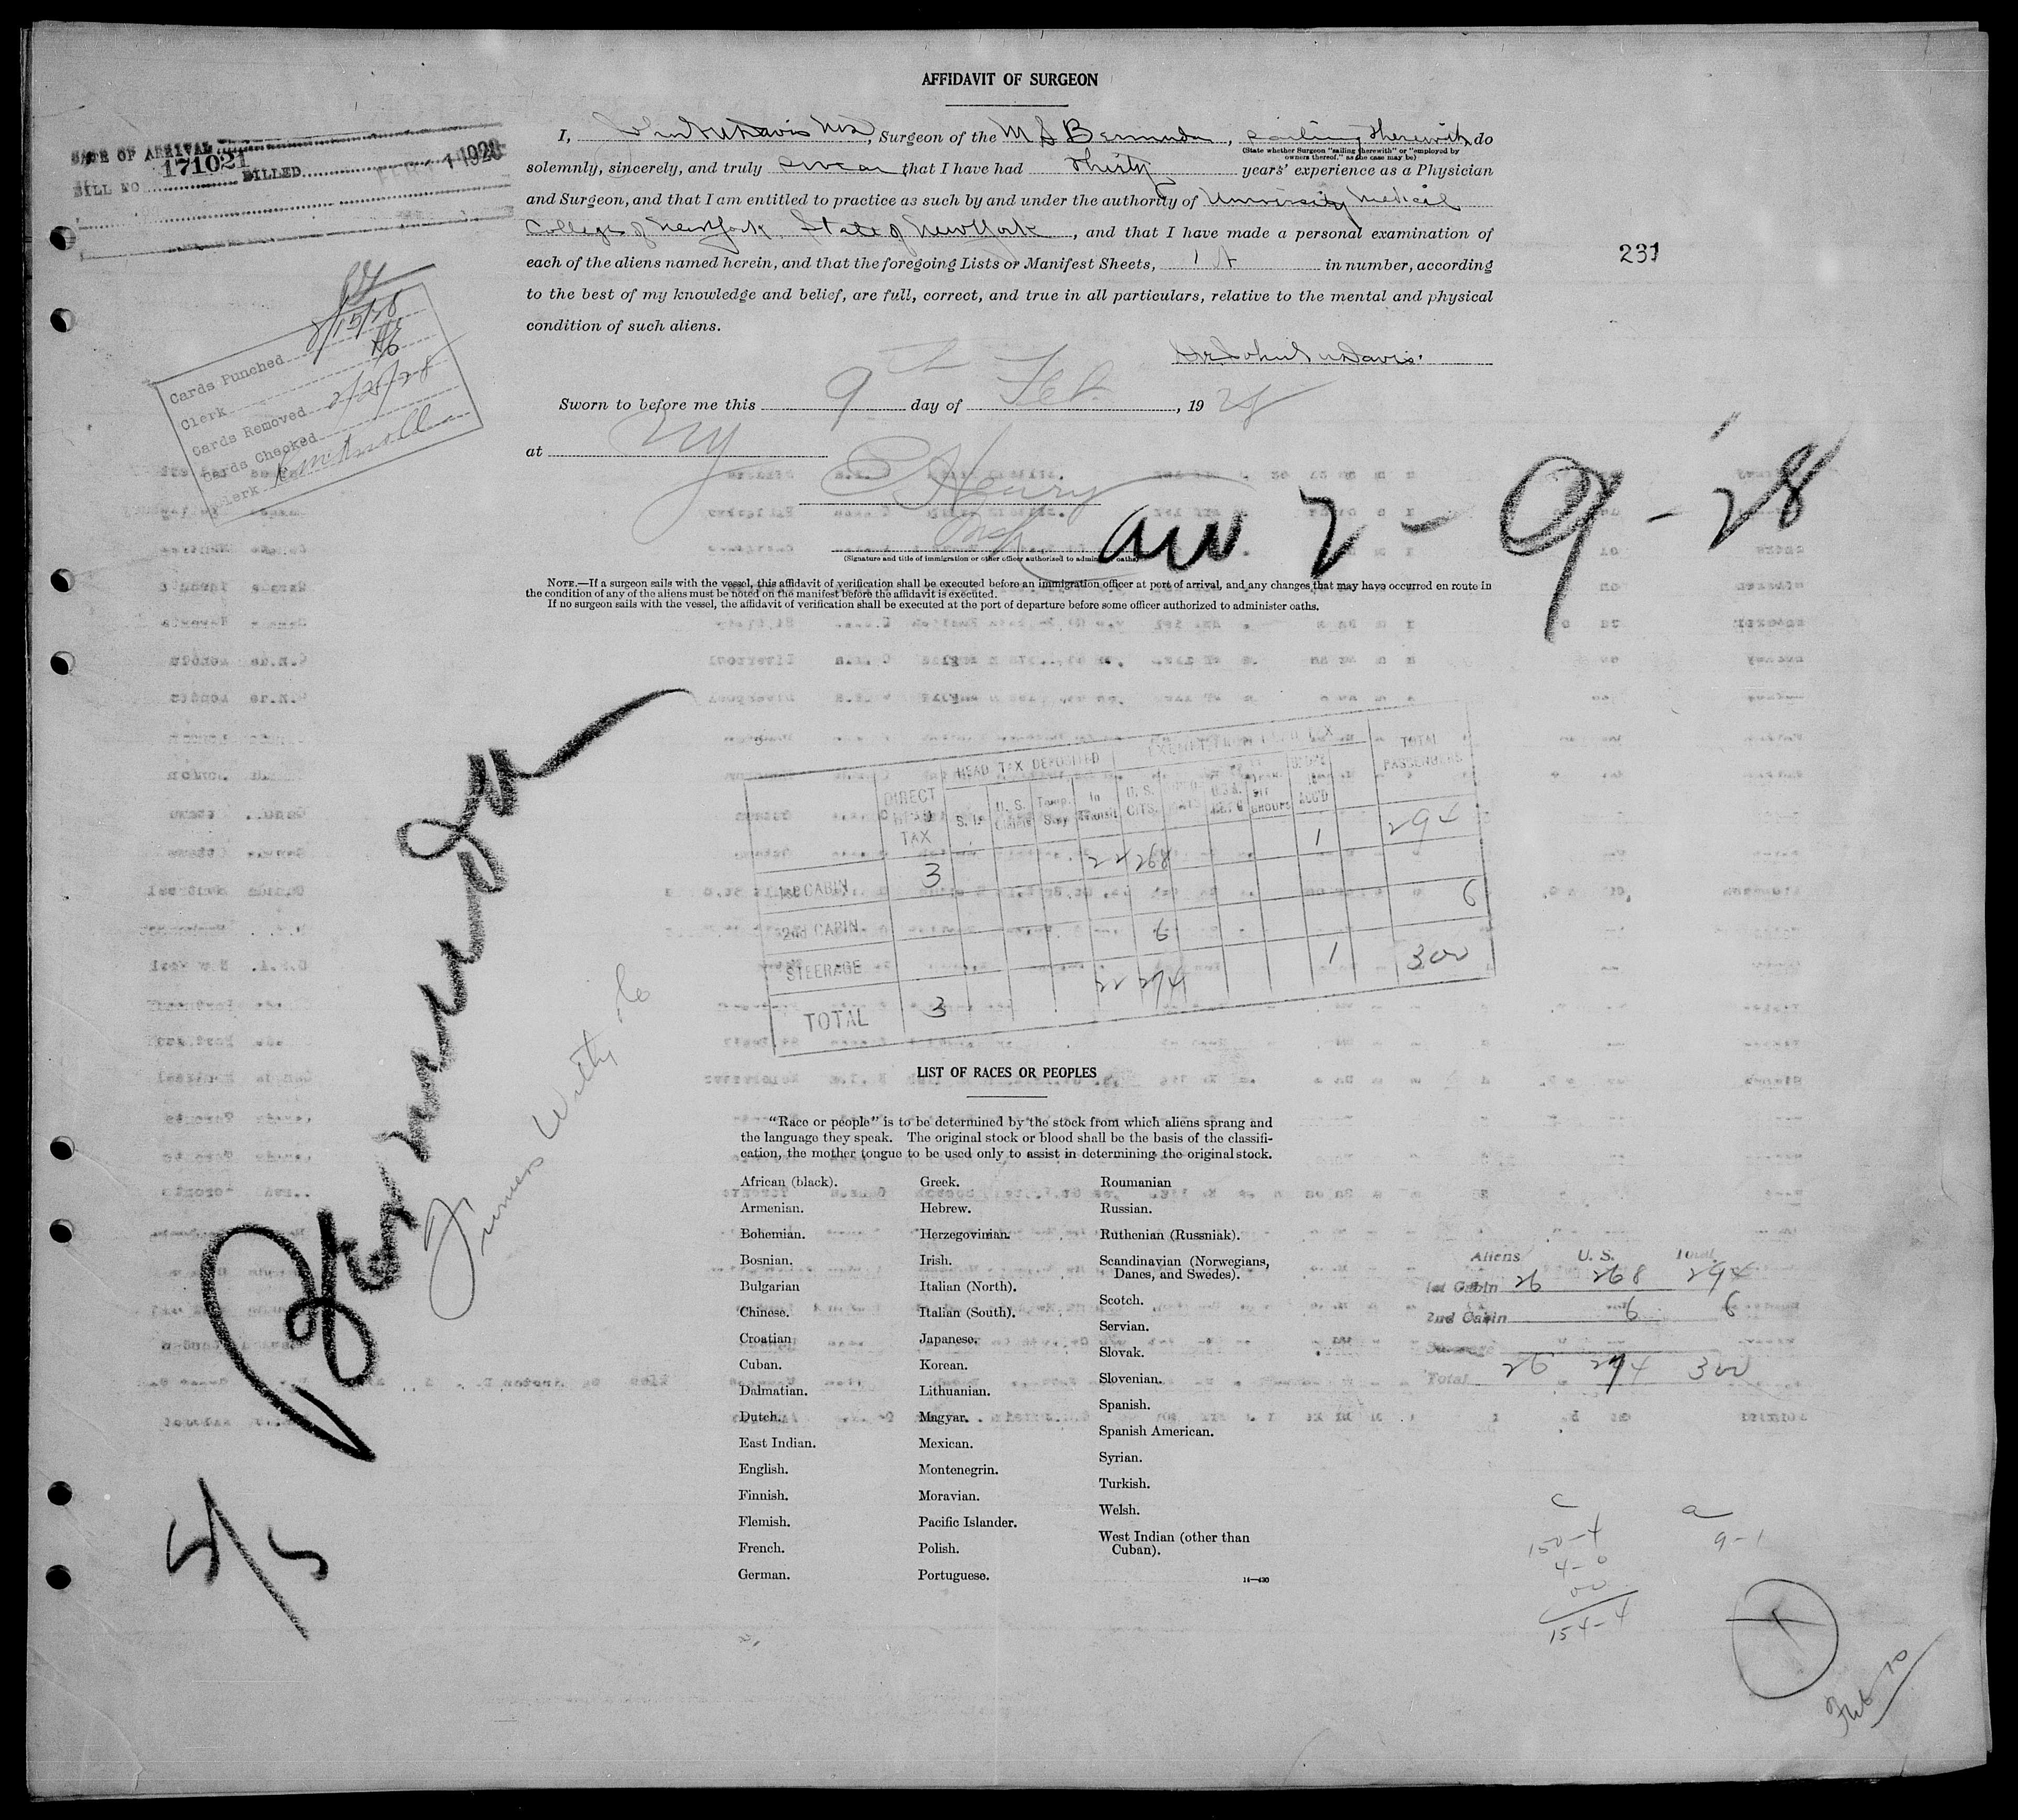 AFFIDAVIT OF SURGEON
DATE OF ARRIVAL
BILL NO 171021 BILLED
231
I, Davis MD, Surgeon of the M S Bermuda, sailing therewith, do
(State whether Surgeon "sailing therewith" or "employed by
owners thereof," as the case may be)
solemnly, sincerely, and truly swear that I have had Thirty years' experience as a Physician
and Surgeon, and that I am entitled to practice as such by and under the authority of University Medical
College of New York, State of New York, and that I have made a personal examination of
each of the aliens named herein, and that the foregoing Lists or Manifest Sheets, 1 A in number, according
to the best of my knowledge and belief, are full, correct, and true in all particulars, relative to the mental and physical
condition of such aliens.
Dr. John Davis
Cards Punched 2/15/28
Clerk
Cards Removed 2/25/28
Cards Checked
Clerk
Sworn to before me this 9th day of Feb., 1928
at NY
Henry
arr 2-9-28
(Signature and title of immigration or other officer authorized to administer oaths)
NOTE.—If a surgeon sails with the vessel, this affidavit of verification shall be executed before an immigration officer at port of arrival, and any changes that may have occurred en route in
the condition of any of the aliens must be noted on the manifest before the affidavit is executed.
If no surgeon sails with the vessel, the affidavit of verification shall be executed at the port of departure before some officer authorized to administer oaths.
Bermuda
Furness Withy Co
5/5
HEAD TAX DEPOSITED
EXEMPT FROM HEAD TAX
TOTAL PASSENGERS
DIRECT HEAD TAX
S. I. U. S. Temp. Stay In Transit U. S. CITS.
1st CABIN 3 22 268 1 294
2nd CABIN 6 6
STEERAGE
TOTAL 3 22 274 1 300
LIST OF RACES OR PEOPLES
"Race or people" is to be determined by the stock from which aliens sprang and
the language they speak. The original stock or blood shall be the basis of the classifi-
cation, the mother tongue to be used only to assist in determining the original stock.
African (black).
Armenian.
Bohemian.
Bosnian.
Bulgarian
Chinese.
Croatian
Cuban.
Dalmatian.
Dutch.
East Indian.
English.
Finnish.
Flemish.
French.
German.
Greek.
Hebrew.
Herzegovinian.
Irish.
Italian (North).
Italian (South).
Japanese.
Korean.
Lithuanian.
Magyar.
Mexican.
Montenegrin.
Moravian.
Pacific Islander.
Polish.
Portuguese.
Roumanian
Russian.
Ruthenian (Russniak).
Scandinavian (Norwegians,
Danes, and Swedes).
Scotch.
Servian.
Slovak.
Slovenian.
Spanish.
Spanish American.
Syrian.
Turkish.
Welsh.
West Indian (other than
Cuban).
14—430
Aliens U. S. Total
1st Cabin 26 268 294
2nd Cabin 6 6
Steerage
Total 26 274 300
c a
150-4 9-1
4-0
00
154-4
1
Feb 10